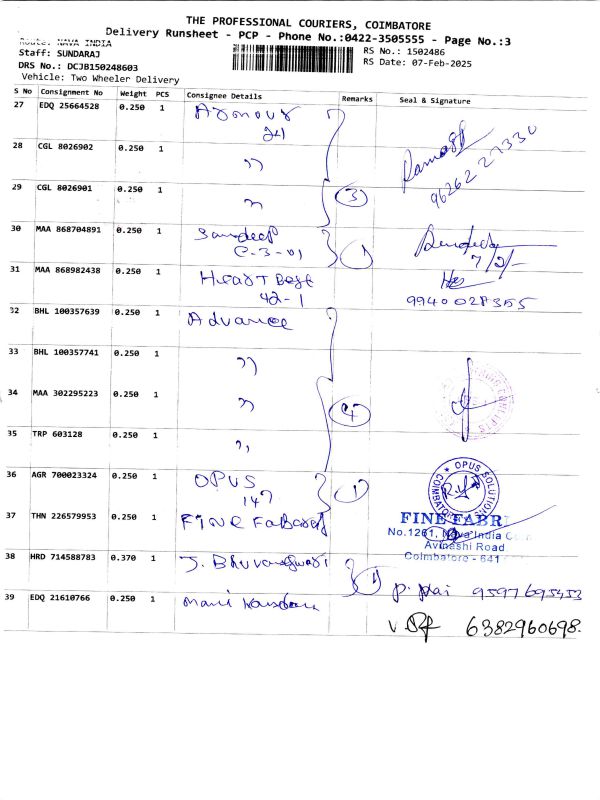 THE PROFESSIONAL COURIERS, COIMBATORE
Delivery Runsheet - PCP - Phone No.:0422-3505555 - Page No.:3
Route: NAVA INDIA
Staff: SUNDARAJ
RS No.: 1502486
DRS No.: DCJB150248603
RS Date: 07-Feb-2025
Vehicle: Two Wheeler Delivery
S No Consignment No Weight PCS Consignee Details Remarks Seal & Signature
27 EDQ 25664528 0.250 1
24
28 CGL 8026902 0.250 1 "
96262 27330
29 CGL 8026901 0.250 1 " 3
30 MAA 868704891 0.250 1 Sandeep
C-3-01 1
7/2/-
31 MAA 868982438 0.250 1
42-1
9940028355
32 BHL 100357639 0.250 1 Advance
33 BHL 100357741 0.250 1 "
34 MAA 302295223 0.250 1 " 4
35 TRP 603128 0.250 1 "
36 AGR 700023324 0.250 1 OPUS
147 1
OPUS SOLUTION
COIMBATORE
37 THN 226579953 0.250 1 Fine
FINE FABR
No.1261, Nava India
Avinashi Road
Coimbatore - 641
38 HRD 714588783 0.370 1 J. Bhuvaneswari 1 9597695453
39 EDQ 21610766 0.250 1 Mani
6382960698.